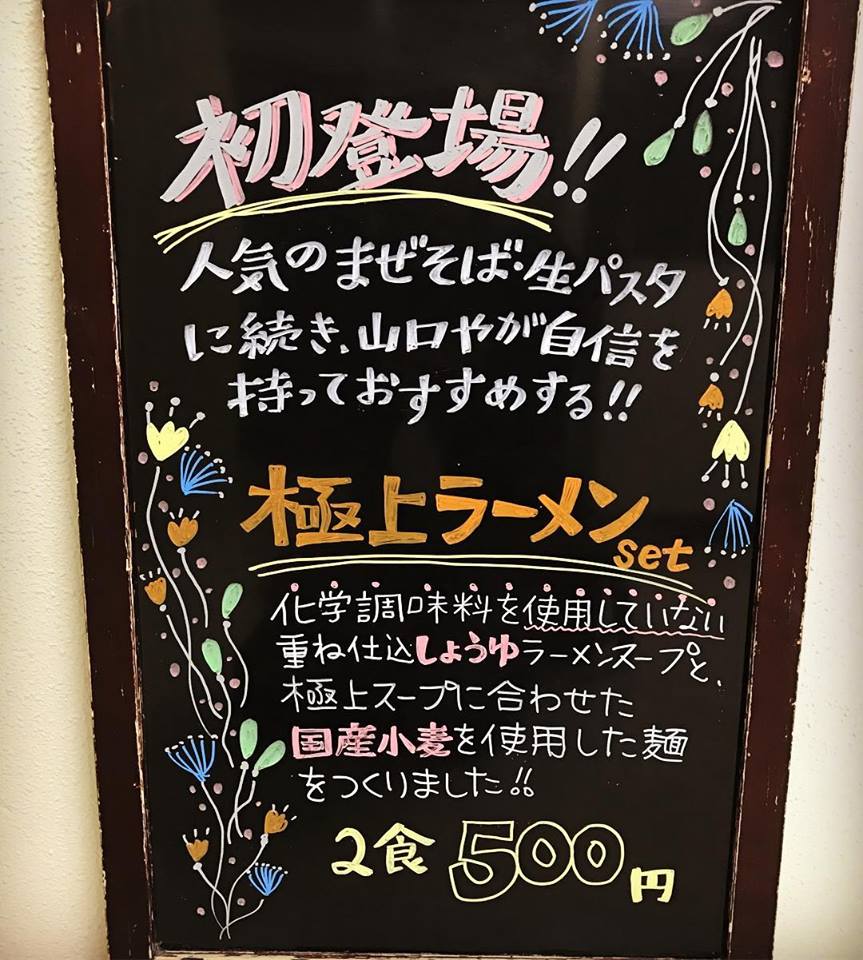 初登場!!
人気のまぜそば・生パスタ
に続き、山口やが自信を
持っておすすめする!!
極上ラーメン
set
化学調味料を使用していない
重ね仕込しょうゆラーメンスープと、
極上スープに合わせた
国産小麦を使用した麺
をつくりました!!
2食 500円